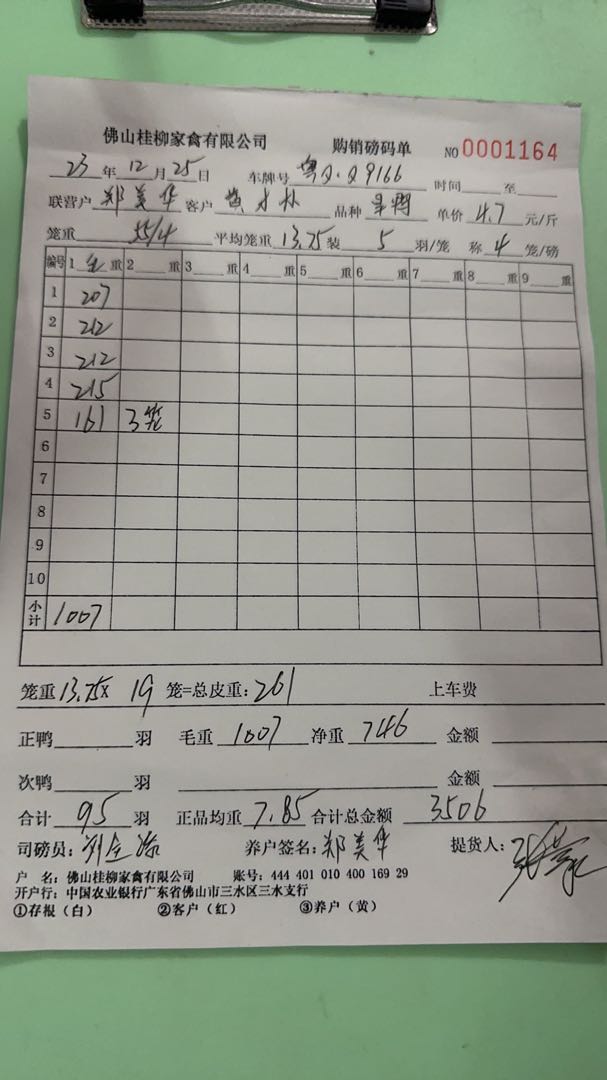 佛山桂柳家禽有限公司 购销磅码单 NO 0001164
23 年 12 月 25 日 车牌号 粤Q·Q9166 时间 至
联营户 郑美华 客户 品种 单价 4.7 元/斤
笼重 55/4 平均笼重 13.75 装 5 羽/笼 称 4 笼/磅
编号 1 毛 重 2 重 3 重 4 重 5 重 6 重 7 重 8 重 9 重
1 207
2 212
3 212
4 215
5 161 3笼
6
7
8
9
10
小计 1007
笼重 13.75× 19 笼=总皮重: 261 上车费
正鸭 羽 毛重 1007 净重 746 金额
次鸭 羽 金额
合计 95 羽 正品均重 7.85 合计总金额 3506
司磅员: 养户签名: 郑美华 提货人:
户 名: 佛山桂柳家禽有限公司 账号: 444 401 010 400 169 29
开户行: 中国农业银行广东省佛山市三水区三水支行
①存根（白） ②客户（红） ③养户（黄）